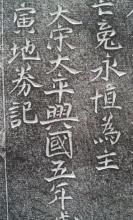 永恒為主
大宋太平興國五年
寅地券記